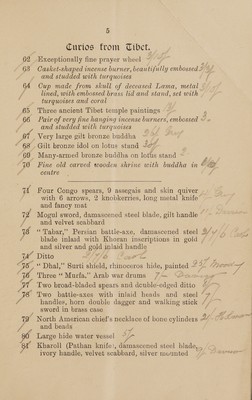 5
Curios from Tibet.
62 Exceptionally fine prayer wheel
63 Casket-shaped incense burner, beautifully embossed
and studded with turquoises
64 Cup made from skull of deceased Lama, metal
lined, with embossed brass lid and stand, set with
turquoises and coral
65 Three ancient Tibet temple paintings
66 Pair of very fine hanging incense burners, embossed
and studded with turquoises
67 Very large gilt bronze buddha
68 Gilt bronze idol on lotus stand
69 Many-armed bronze buddha on lotus stand
70 Fine old carved wooden shrine with buddha in
centre
71 Four Congo spears, 9 assegais and skin quiver
with 6 arrows, 2 knobkerries, long metal knife
and fancy mat
72 Mogul sword, damascened steel blade, gilt handle
and velvet scabbard
73 "Tabar," Persian battle-axe, damascened steel
blade inlaid with Khoran inscriptions in gold
and silver and gold inlaid handle
74 Ditto
75 "Dhal," Surti shield, rhinoceros hide, painted
76 Three "Marfa," Arab war drums
77 Two broad-bladed spears and double-edged ditto
78 Two battle-axes with inlaid heads and steel
handles, horn double dagger and walking stick
sword in brass case
79 North American chief's necklace of bone cylinders
and beads
80 Large hide water vessel
81 Kharoll (Pathan knife), damascened steel blade,
ivory handle, velvet scabbard, silver mounted